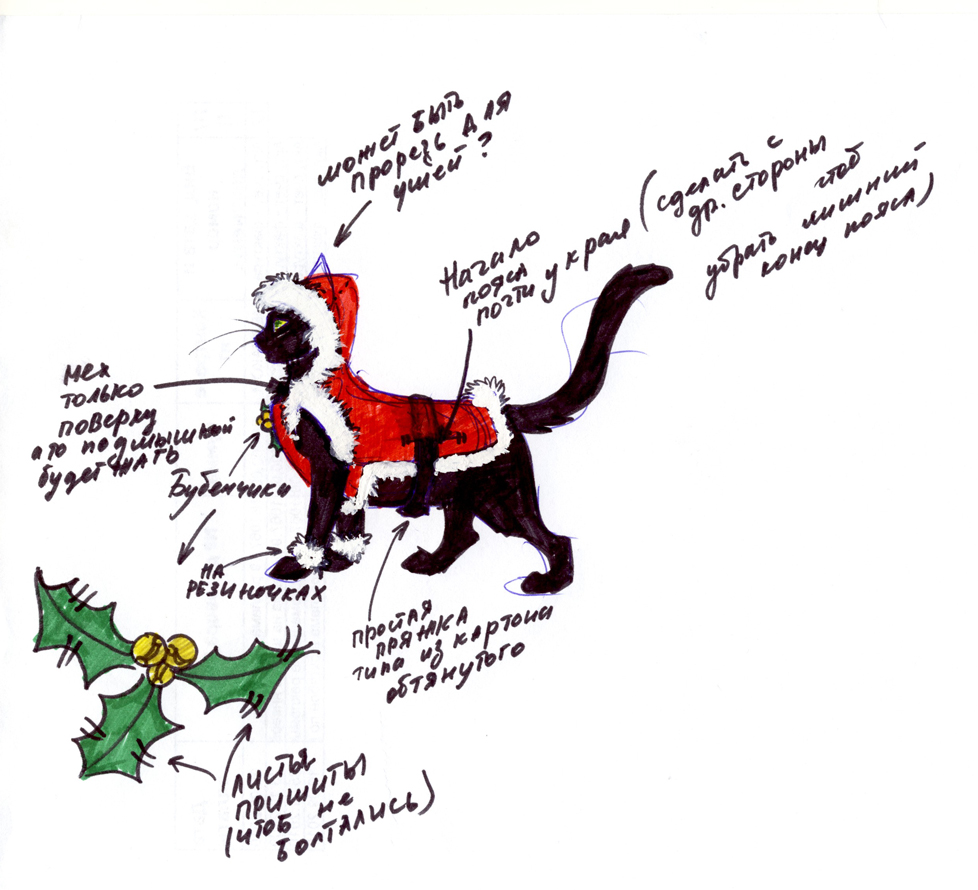 может быть
прорезь для
ушей?
Начало
пояса
почти у края
(сделать с
др. стороны
чтоб
убрать лишний
конец пояса)
мех
только
поверху
а то подмышкой
будет жать
Бубенчики
на
резиночках
простая
пряжка
типа из картона
обтянутого
листья
пришиты
(чтоб не
болтались)